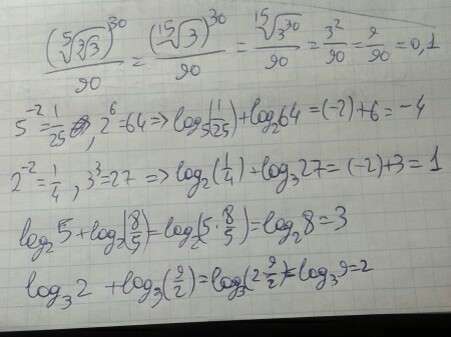 (⁵√³√3)³⁰/90 = (¹⁵√3)³⁰/90 = ¹⁵√3³⁰/90 = 3²/90 = 9/90 = 0,1
5⁻² = 1/25, 2⁶ = 64 => log₅(1/25) + log₂64 = (-2) + 6 = -4
2⁻² = 1/4, 3³ = 27 => log₂(1/4) + log₃27 = (-2) + 3 = 1
log₂5 + log₂(8/5) = log₂(5·8/5) = log₂8 = 3
log₃2 + log₃(9/2) = log₃(2 9/2) = log₃9 = 2